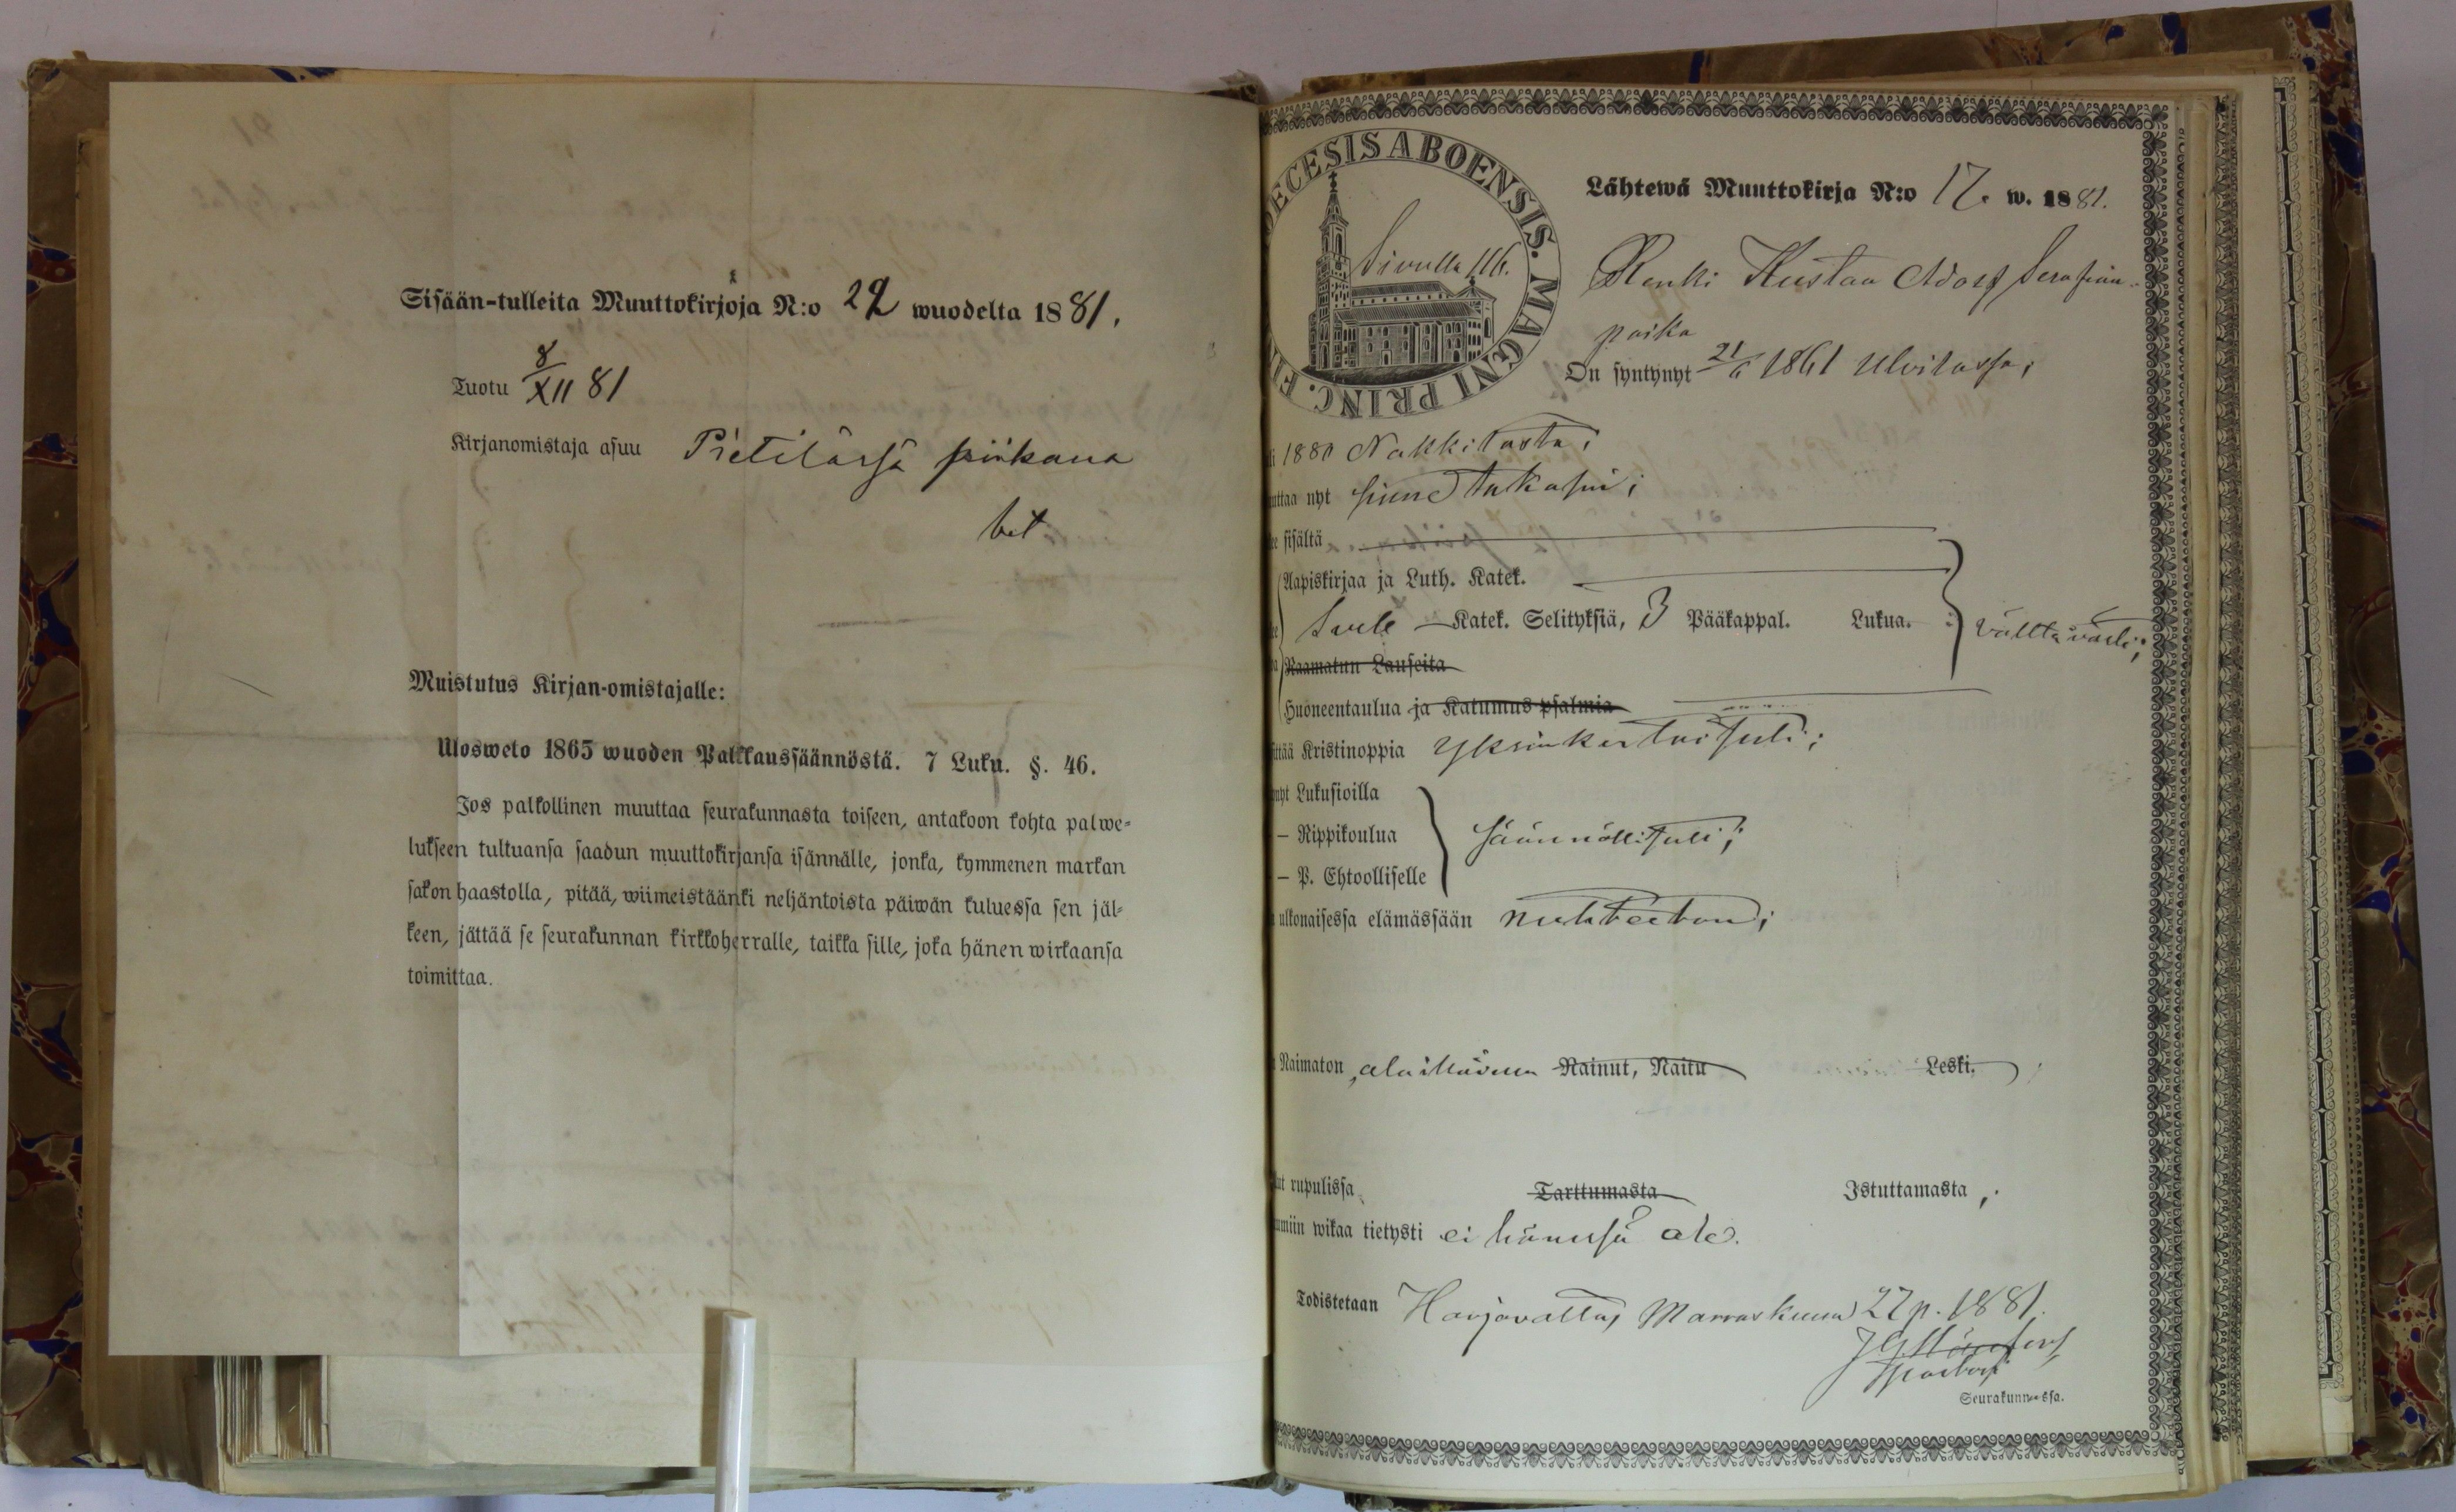 Sisään-tulleita Muuttokirjoja N:o 22 wuodelta 1881.
Tuotu 8/XII 81
Kirjanomistaja asuu Pietilässä piikana
bet
Muistutus Kirjan-omistajalle:
Ulosweto 1865 wuoden Palkkaussäännöstä. 7 Luku. §. 46.
Jos palkollinen muuttaa seurakunnasta toiseen, antakoon kohta palwe-
lukseen tultuansa saadun muuttokirjansa isännälle, jonka, kymmenen markan
sakon haastolla, pitää, wiimeistäänki neljäntoista päiwän kuluessa sen jäl-
keen, jättää se seurakunnan kirkkoherralle, taikka sille, joka hänen wirkaansa
toimittaa.
DECESIS ABOENSIS. MAGNI PRINC. FI
Sivulla 116.
Lähtewä Muuttokirja N:o 17. w. 1881.
Renki Kustaa Adolf Serafiin
poika
On syntynyt 21/6 1861 Ulvilassa;
1880 Nakkilasta;
uttaa nyt sinne takasin;
sisältä
Aapiskirjaa ja Luth. Katek.
Svebe Katek. Selityksiä, 3 Pääkappal. Lukua. välttävästi;
Raamatun Lauseita
Huoneentaulua ja Katumus psalmia
ittää Kristinoppia Yksinkertaisesti;
ynyt Lukusioilla
— Rippikoulua säännöllisesti;
— P. Ehtoolliselle
ulkonaisessa elämässään nuhteeton;
Naimaton, Nainut, Naitu Leski.
ut rupulissa Tarttumasta Istuttamasta,
umiin wikaa tietysti ei hänessä ole.
Todistetaan Harjavallas, Marraskuun 27 p. 1881.
Seurakunnassa.